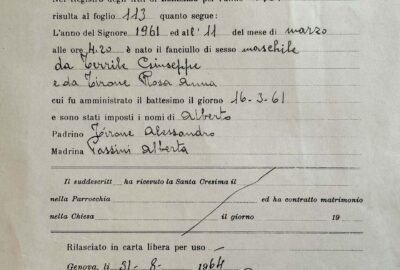 risulta al foglio 113 quanto segue:
L'anno del Signore 1961 ed all' 11 del mese di marzo
alle ore 4.20 è nato il fanciullo di sesso maschile
da Terrile Giuseppe
e da Tirone Rosa Anna
cui fu amministrato il battesimo il giorno 16-3-61
e sono stati imposti i nomi di Alberto
Padrino Tirone Alessandro
Madrina Passini Alberta
Il suddescritt ha ricevuto la Santa Cresima il
nella Parrocchia ed ha contratto matrimonio
nella Chiesa il giorno 19
Rilasciato in carta libera per uso
Genova, li 31-8-1964